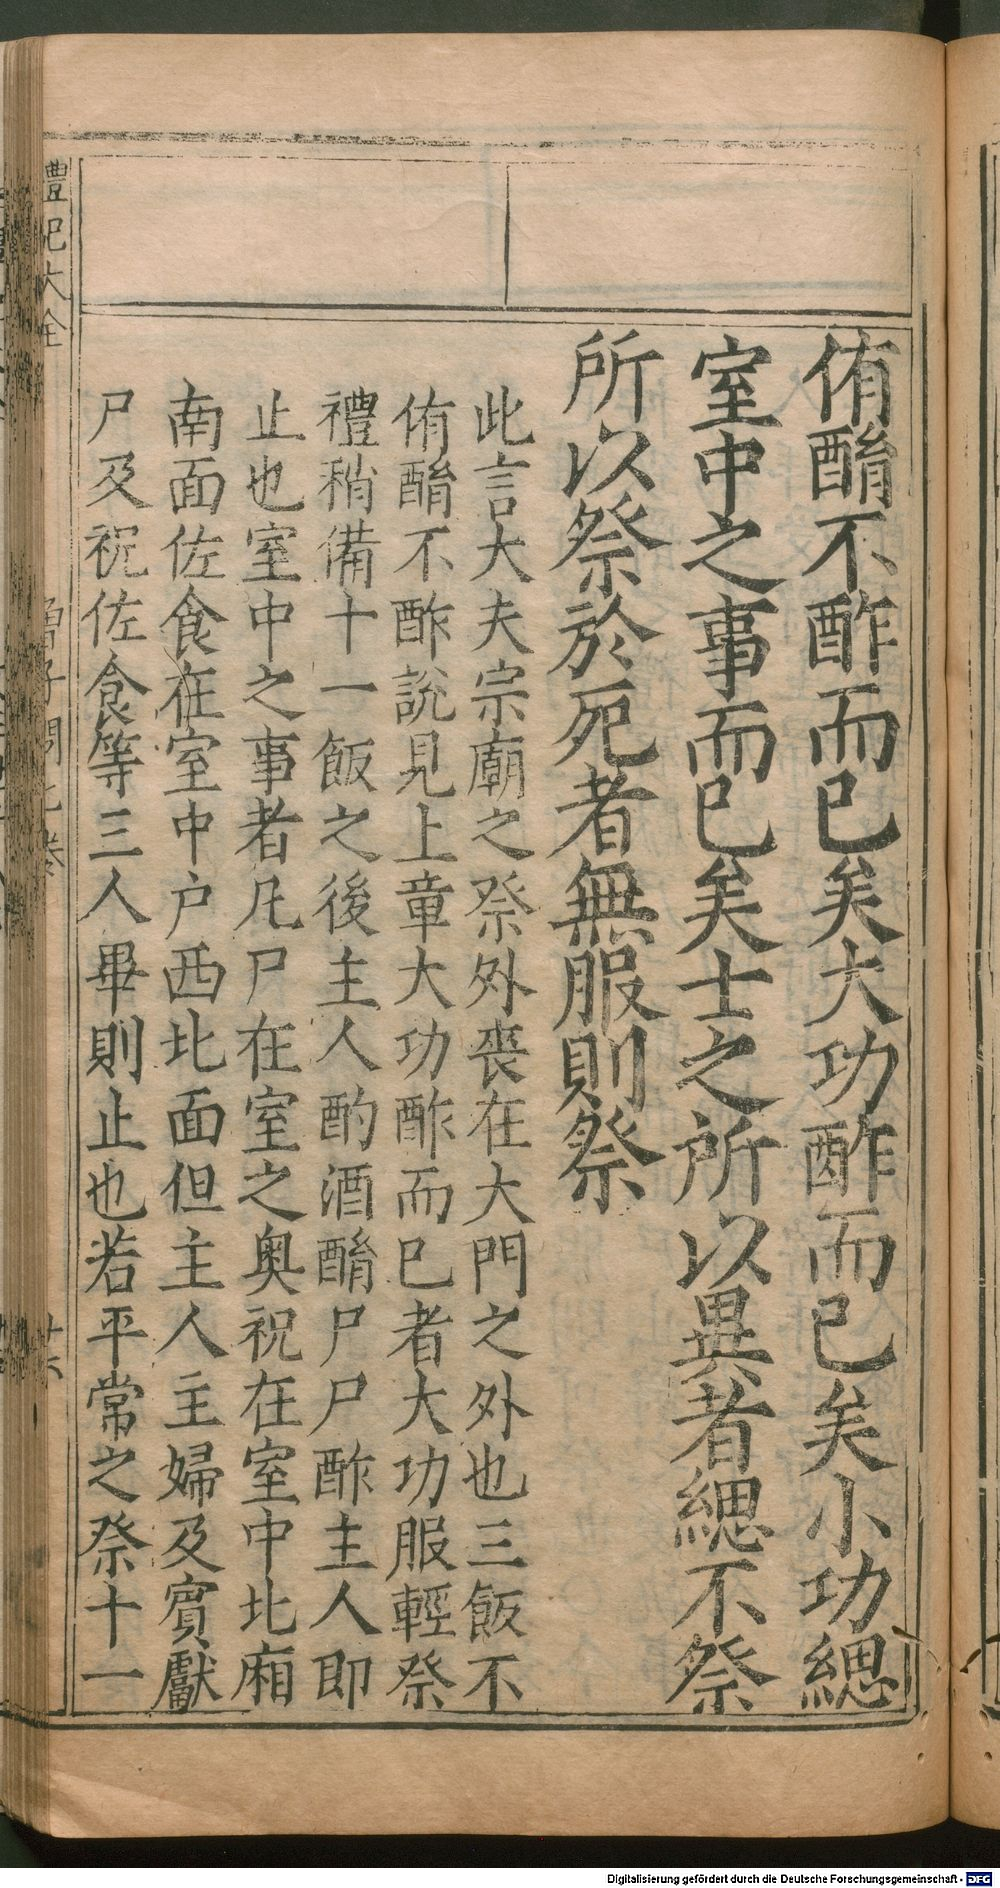 侑酳不酢而已矣大功酢而已矣小功緦
室中之事而已矣士之所以異者緦不祭
所以祭於死者無服則祭
此言大夫宗廟之祭外喪在大門之外也三飯不
侑酳不酢說見上章大功酢而已者大功服輕祭
禮稍備十一飯之後主人酌酒酳尸尸酢主人即
止也室中之事者凡尸在室之奧祝在室中北廂
南面佐食在室中户西北面但主人主婦及賓獻
尸及祝佐食等三人畢則止也若平常之祭十一
禮記大全
曾子問七卷
廿六
Digitalisierung gefördert durch die Deutsche Forschungsgemeinschaft - DFG